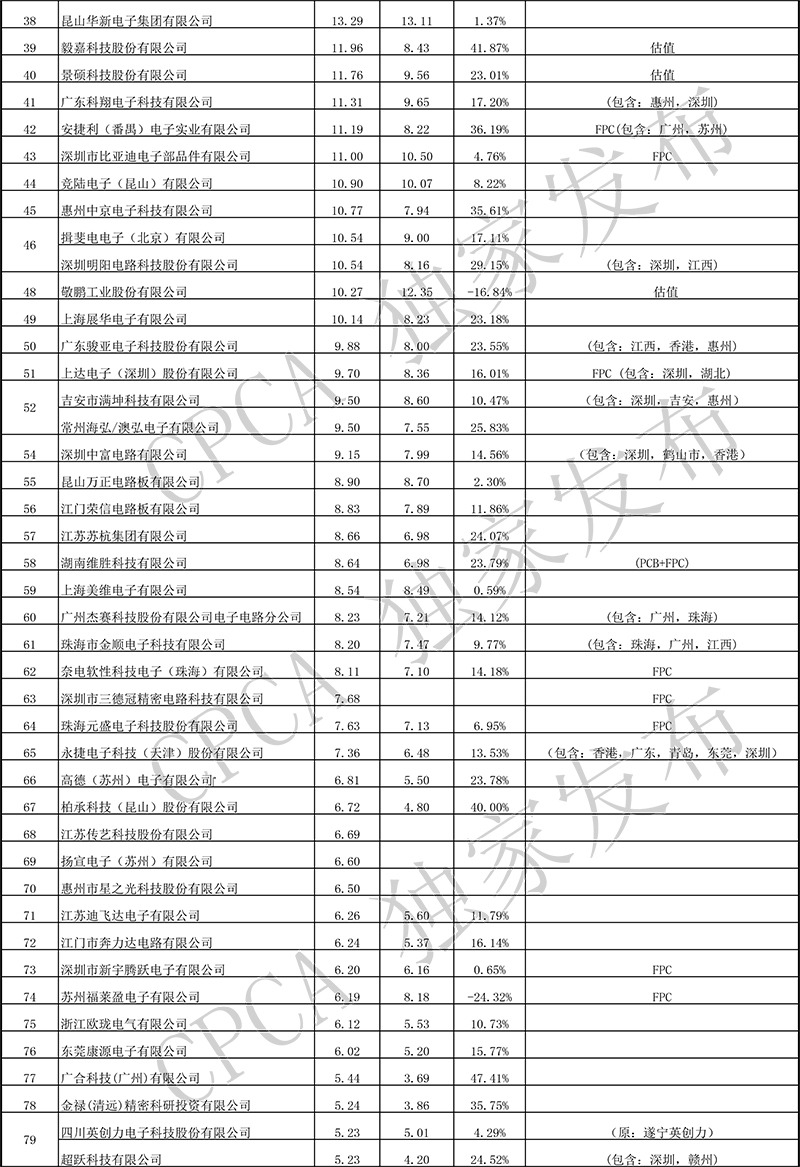 38 昆山华新电子集团有限公司 13.29 13.11 1.37%
39 毅嘉科技股份有限公司 11.96 8.43 41.87% 估值
40 景硕科技股份有限公司 11.76 9.56 23.01% 估值
41 广东科翔电子科技有限公司 11.31 9.65 17.20% (包含：惠州，深圳)
42 安捷利（番禺）电子实业有限公司 11.19 8.22 36.19% FPC(包含：广州，苏州)
43 深圳市比亚迪电子部品件有限公司 11.00 10.50 4.76% FPC
44 竞陆电子（昆山）有限公司 10.90 10.07 8.22%
45 惠州中京电子科技有限公司 10.77 7.94 35.61%
46 揖斐电电子（北京）有限公司 10.54 9.00 17.11%
深圳明阳电路科技股份有限公司 10.54 8.16 29.15% (包含：深圳，江西)
48 敬鹏工业股份有限公司 10.27 12.35 -16.84% 估值
49 上海展华电子有限公司 10.14 8.23 23.18%
50 广东骏亚电子科技股份有限公司 9.88 8.00 23.55% (包含：江西，香港，惠州)
51 上达电子（深圳）股份有限公司 9.70 8.36 16.01% FPC (包含：深圳，湖北)
52 吉安市满坤科技有限公司 9.50 8.60 10.47% （包含：深圳，吉安，惠州）
常州海弘/澳弘电子有限公司 9.50 7.55 25.83%
54 深圳中富电路有限公司 9.15 7.99 14.56% （包含：深圳，鹤山市，香港）
55 昆山万正电路板有限公司 8.90 8.70 2.30%
56 江门荣信电路板有限公司 8.83 7.89 11.86%
57 江苏苏杭集团有限公司 8.66 6.98 24.07%
58 湖南维胜科技有限公司 8.64 6.98 23.79% (PCB+FPC)
59 上海美维电子有限公司 8.54 8.49 0.59%
60 广州杰赛科技股份有限公司电子电路分公司 8.23 7.21 14.12% (包含：广州，珠海)
61 珠海市金顺电子科技有限公司 8.20 7.47 9.77% (包含：珠海，广州，江西)
62 奈电软性科技电子（珠海）有限公司 8.11 7.10 14.18% FPC
63 深圳市三德冠精密电路科技有限公司 7.68 FPC
64 珠海元盛电子科技股份有限公司 7.63 7.13 6.95% FPC
65 永捷电子科技（天津）股份有限公司 7.36 6.48 13.53% （包含：香港，广东，青岛，东莞，深圳）
66 高德（苏州）电子有限公司 6.81 5.50 23.78%
67 柏承科技（昆山）股份有限公司 6.72 4.80 40.00%
68 江苏传艺科技股份有限公司 6.69
69 扬宣电子（苏州）有限公司 6.60
70 惠州市星之光科技股份有限公司 6.50
71 江苏迪飞达电子有限公司 6.26 5.60 11.79%
72 江门市奔力达电路有限公司 6.24 5.37 16.14%
73 深圳市新宇腾跃电子有限公司 6.20 6.16 0.65% FPC
74 苏州福莱盈电子有限公司 6.19 8.18 -24.32% FPC
75 浙江欧珑电气有限公司 6.12 5.53 10.73%
76 东莞康源电子有限公司 6.02 5.20 15.77%
77 广合科技(广州)有限公司 5.44 3.69 47.41%
78 金禄(清远)精密科研投资有限公司 5.24 3.86 35.75%
79 四川英创力电子科技股份有限公司 5.23 5.01 4.29% （原：遂宁英创力）
超跃科技有限公司 5.23 4.20 24.52% (包含：深圳，赣州)
CPCA 独家发布
CPCA 独家发布
CPCA 独家发布